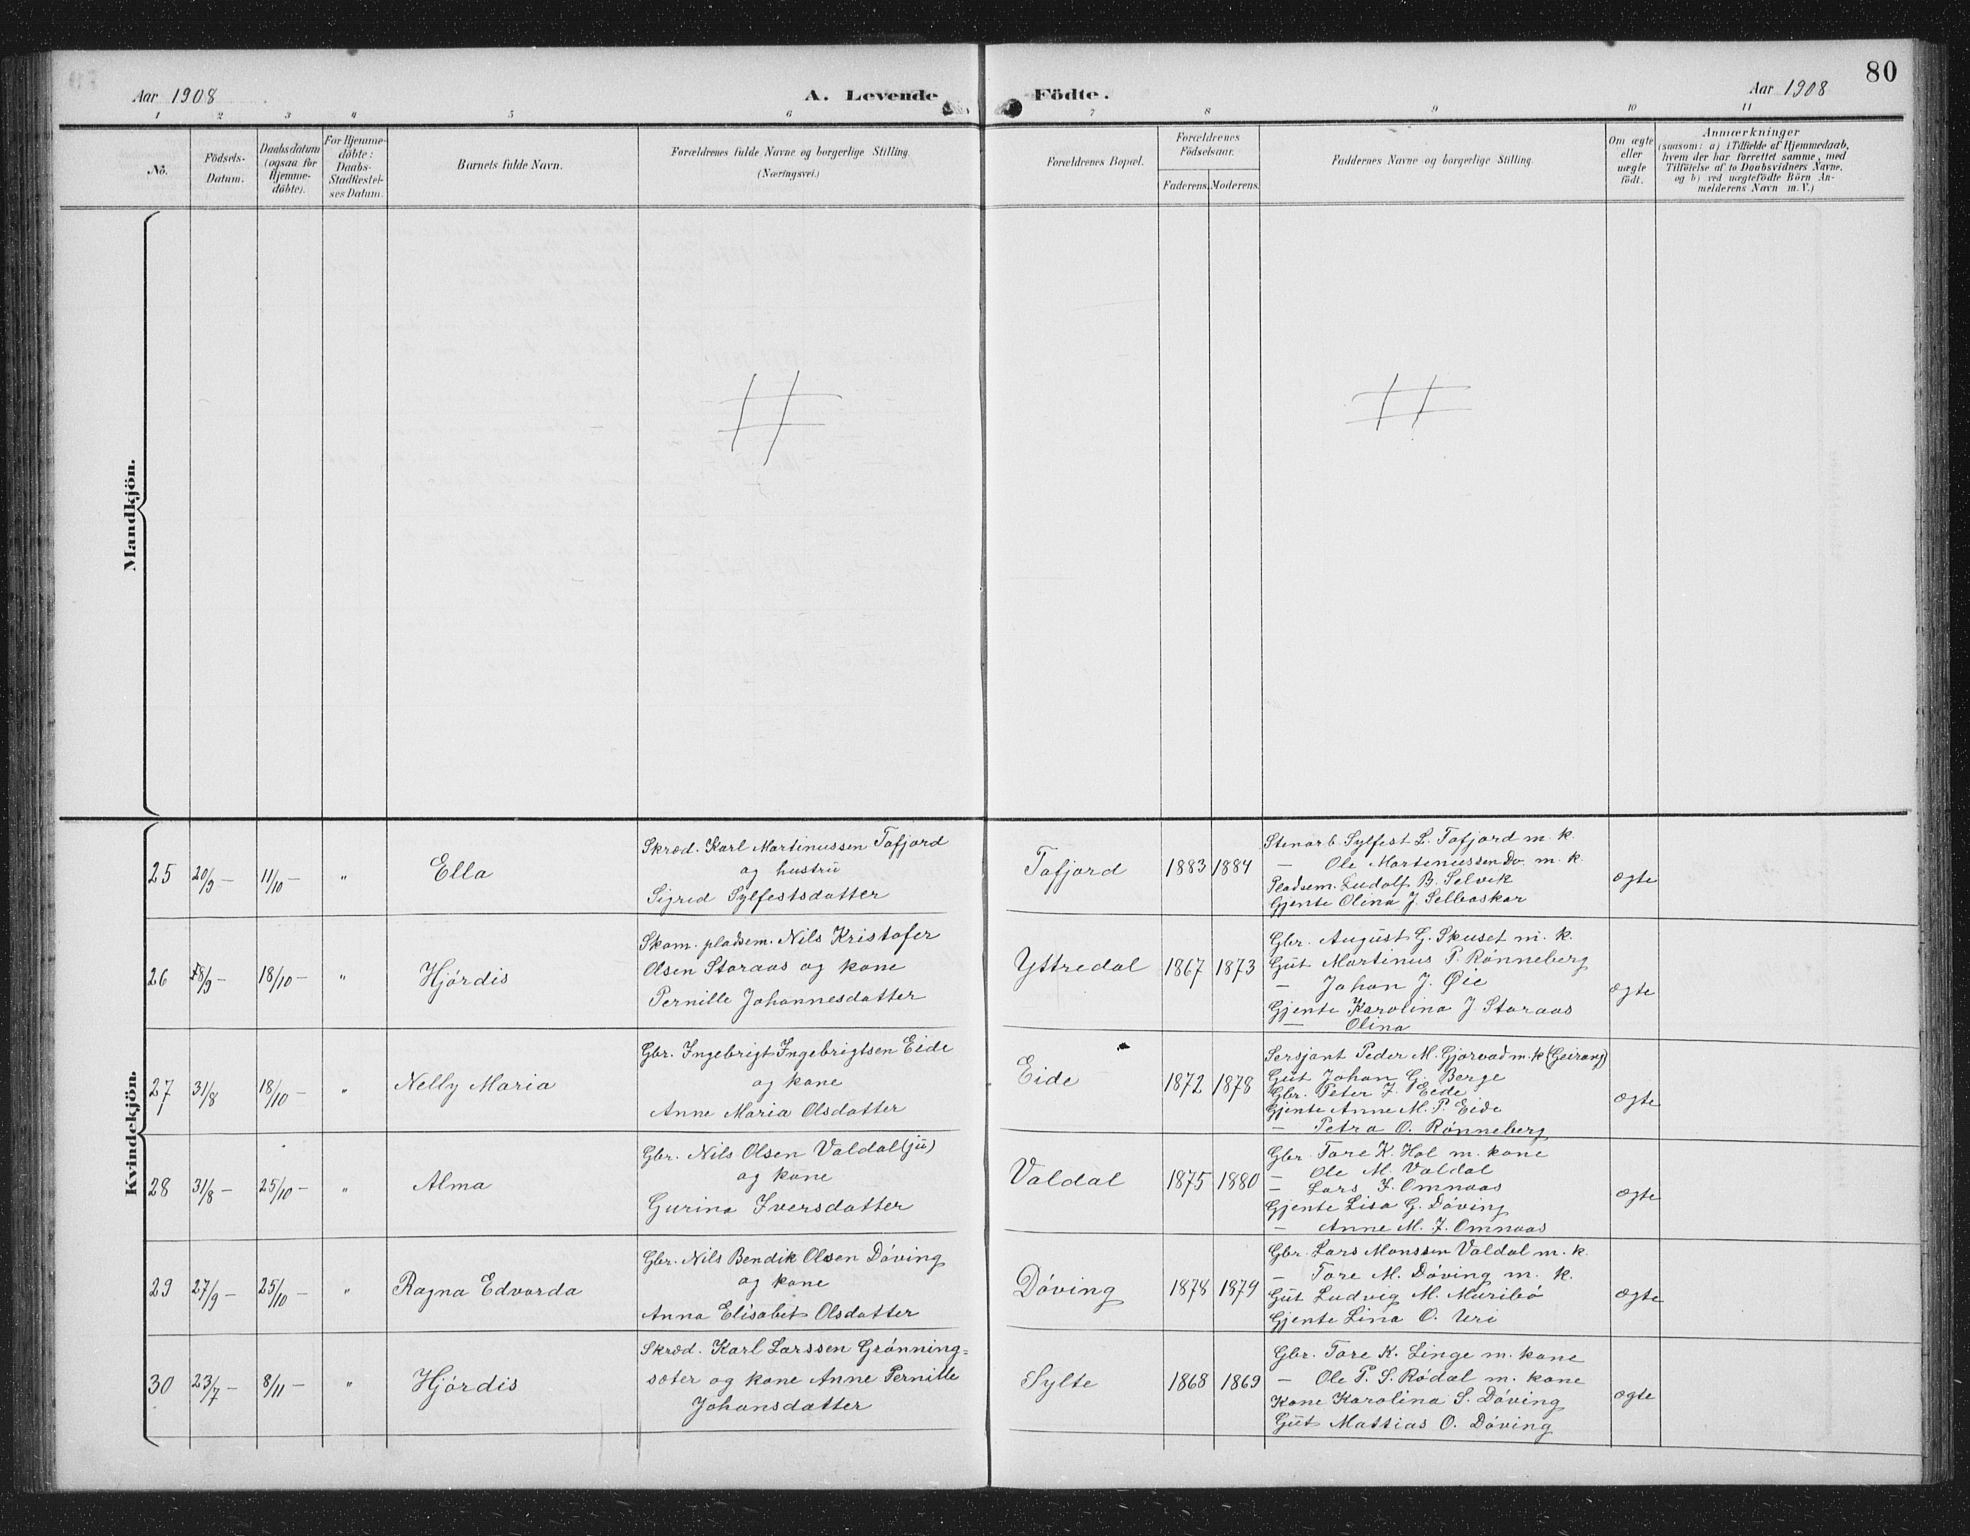 80
Aar 1908
A. Levende
Födte.
Aar 1908
1 2 3 4 5 6 7 8 9 10 11
No.
Födsels-
Datum.
Daabsdatum
(ogsaa for
Hjemme-
döbte).
For Hjemme-
döbte:
Daabs-
Stadfæstel-
ses Datum.
Barnets fulde Navn.
Forældrenes fulde Navne og borgerlige Stilling.
(Næringsvei.)
Forældrenes Bopæl.
Forældrenes
Födselsaar.
Faderens.
Moderens.
Faddernes Navne og borgerlige Stilling.
Om ægte
eller
uægte
födt.
Anmærkninger
(saasom: a) i Tilfælde af Hjemmedaab,
hvem der har forrettet samme, med
Tilföielse af to Daabsvidners Navne,
og b) ved uægtefödte Börn An-
melderens Navn m. V.)
Mandkjön.
Kvindekjön.
25
20/9 –
11/10 –
"
Ella
Skræd. Karl Martinussen Tafjord
og hustrü
Sigrid Sylfestsdatter
Tafjord
1883
1884
Stenarb. Sylfest L. Tafjord m. k.
— Ole Martinussen Do. m. k.
Pladsem. Ludolf B. Selvik
Gjente Olina J. Selboskar
ægte
26
18/9 –
18/10 –
"
Hjórdis
Skom. pladsem. Nils Kristofer
Olsen Storaas og kone
Pernille Johannesdatter
Yttredal
1867
1873
Gbr. August G. Skuset m. k.
Güt Martinus P. Rønneberg
— Johan J. Øie
Gjente Karolina J. Storaas
— Olina
ægte
27
31/8
18/10 –
"
Nelly Maria
Gbr. Ingebrigt Ingebrigtsen Eide
og kone
Anne Maria Olsdatter
Eide
1872
1878
Sersjant Peder M. Gjørvad m. k (Geirang)
Güt Johan G. Berge
Gbr. Peter I. Eide
Gjente Anne M. P. Eide
— Petra O. Rønneberg
ægte
28
31/8 –
25/10 –
"
Alma
Gbr. Nils Olsen Valdal (jü)
og kone
Gurina Iversdatter
Valdal
1875
1880
Gbr. Tore K. Hol m. kone
— Ole M. Valdal
— Lars I. Omnaas
Gjente Lisa G. Dóving
— Anne M. I. Omnaas
ægte
29
27/9 –
25/10 –
"
Ragna Edvarda
Gbr. Nils Bendik Olsen Dóving
og kone
Anna Elisabet Olsdatter
Dóving
1878
1879
Gbr. Lars Monssen Valdal m. k.
— Tore M. Dóving m. k.
Güt Ludvig M. Muribó
Gjente Lina O. Uri
ægte
30
23/7 –
8/11 –
"
Hjórdis
Skræd. Karl Larssen Grónning=
sæter og kone Anne Pernille
Johansdatter
Sylte
1868
1869
Gbr. Tore K. Linge m. kone
— Ole P. S. Ródal m. kone
Kone Karolina S. Dóving
Güt Mattias O. Dóving
ægte